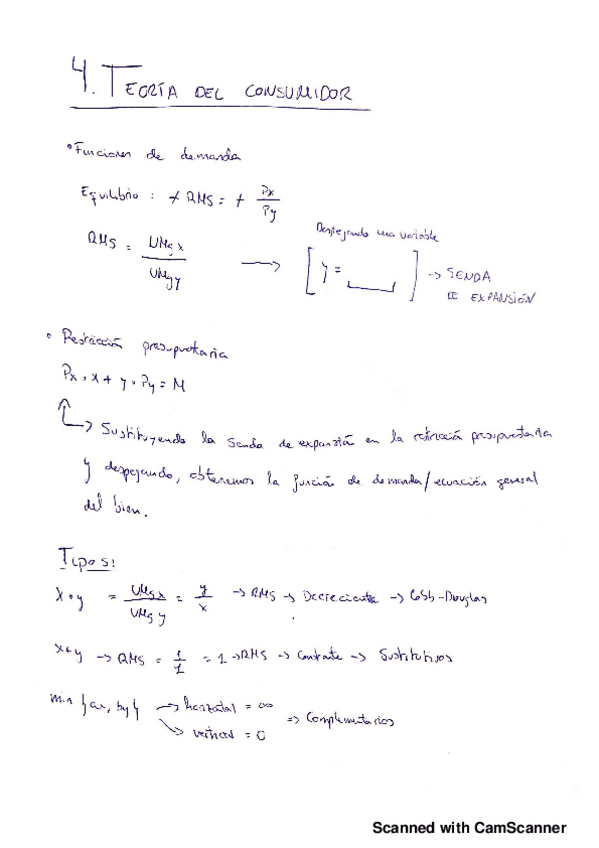 4. TEORÍA DEL CONSUMIDOR
• Funciones de demanda
Equilibrio : ≠ RMS = + Px/Py
RMS = UMgx/UMgy
Despejando una variable
[y = ] → SENDA
DE EXPANSIÓN
• Restricción presupuetaria
Px · x + y · Py = M
↳ Sustituyendo la senda de expansión en la restricción presupuestaria
y despejando, obtenemos la función de demanda/ecuación general
del bien.
Tipos:
x·y = UMgx/UMgy = y/x → RMS → Decreciente → Cobb-Douglas
x+y → RMS = 1/1 = 1 → RMS → Constante → Sustitutivos
min {ax, by} → horizontal = ∞
→ vertical = 0
⇒ Complementarios
Scanned with CamScanner